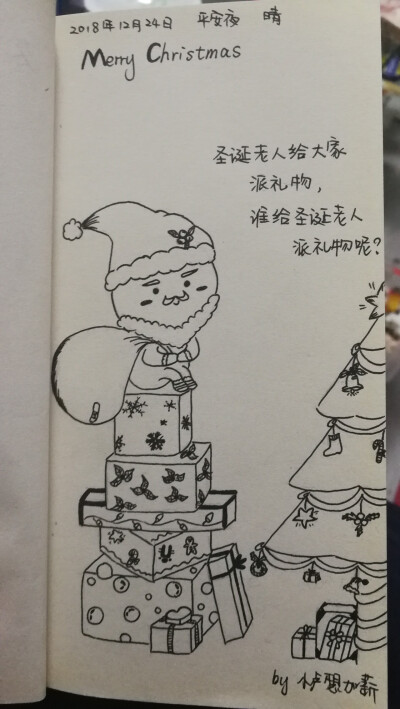 2018年12月24日 平安夜 晴
Merry Christmas
圣诞老人给大家
派礼物,
谁给圣诞老人
派礼物呢?
by 想加薪